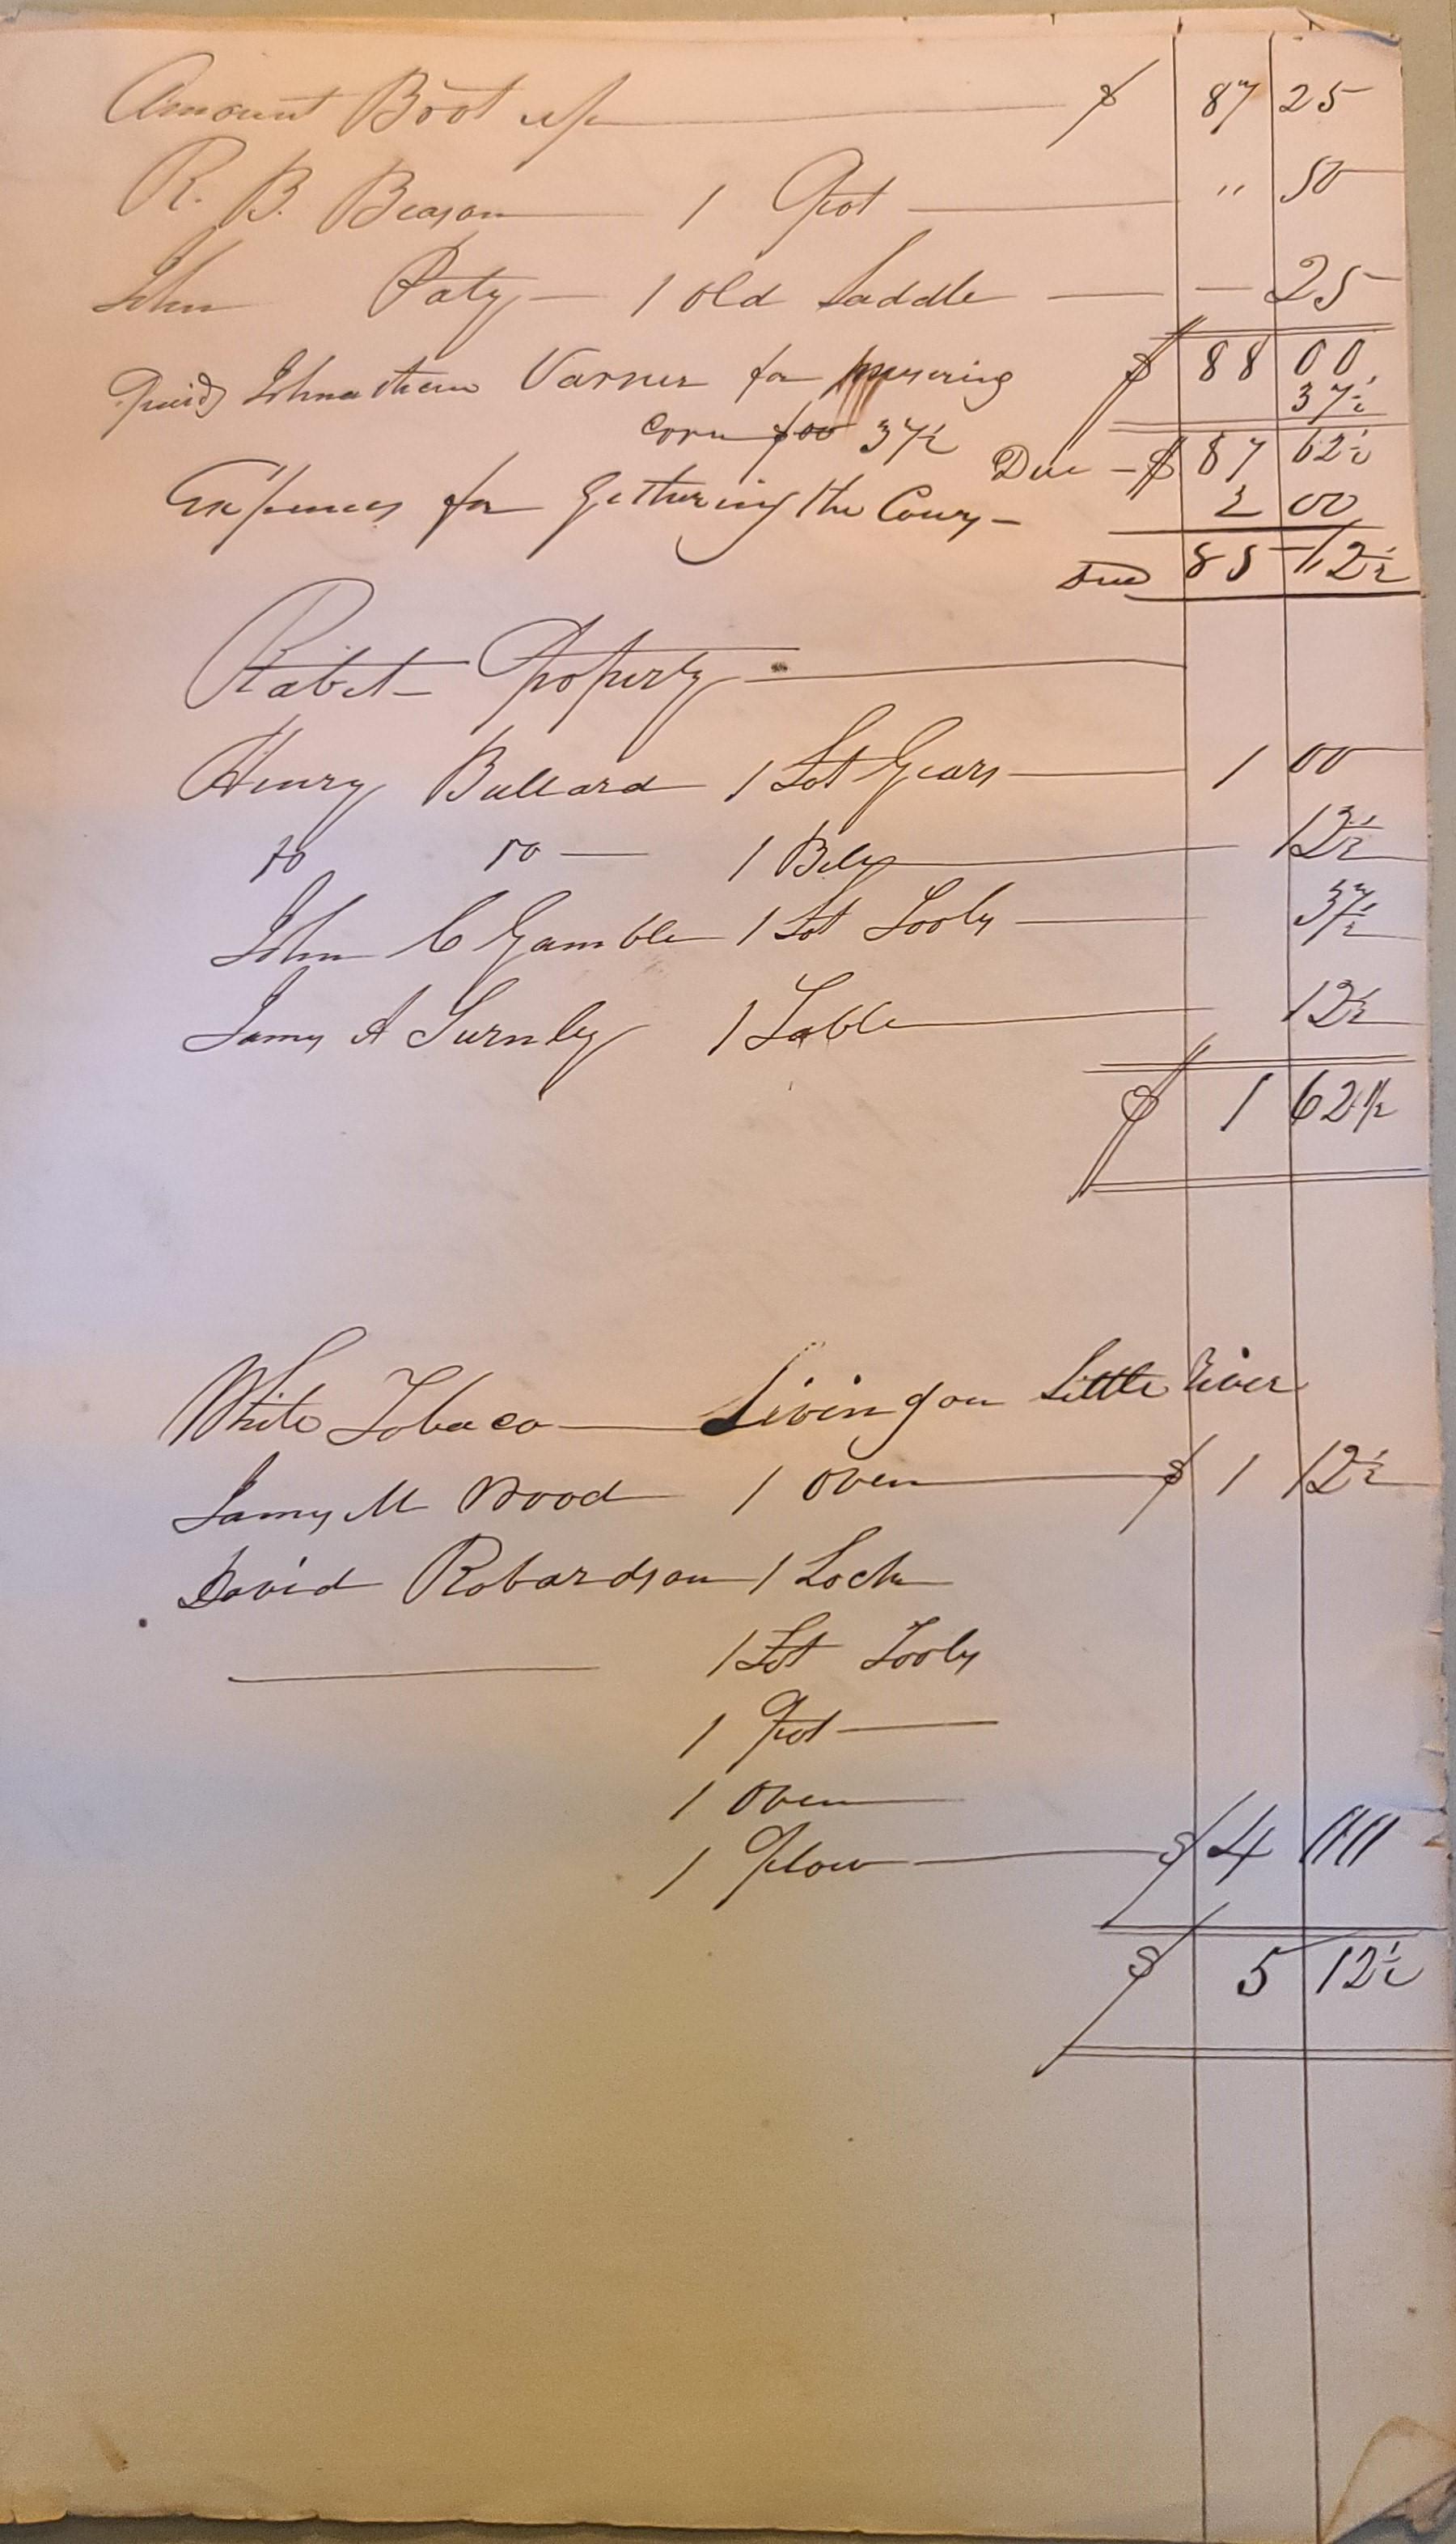 Amount Brot up $ 87 25
R. B. Beason 1 Pot " 50
John Paty 1 old Saddle — 25
$ 88 00
Paid Johnathan Varner for mesuring 37½
corn $00 37½
Due $ 87 62½
Expences for gethering the Cows 2 00
Due 85 12½
Rabit Property
Henry Bullard 1 Lot Gears 1 00
Do Do 1 Bell 12½
John C Gamble 1 Lot Tools 37½
James A Turnley 1 Table 12½
$ 1 62 1/2
White Tobaco Living on Little River
James M Wood 1 Oven $ 1 12½
David Robardson 1 Lock
1 Lot Tools
1 Pot
1 Oven
1 Plow $ 4 00
$ 5 12½